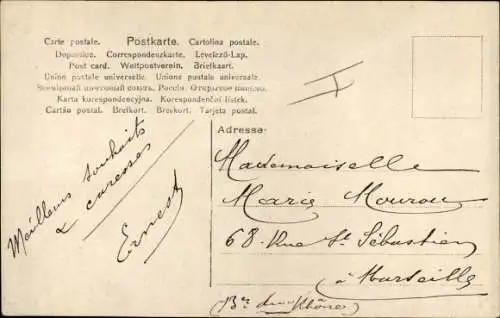 Carte postale. Postkarte. Cartolina postale.
Dopisnice. Correspondenzkarte. Levelező-Lap.
Post card. Weltpostverein. Briefkaart.
Union postale universelle. Unione postale universale.
Всемірный почтовый союзъ. Россія. Открытое письмо.
Karta korespondencyjna. Korespondenční lístek.
Cartão postal. Brefkort. Brevkort. Tarjeta postal.
Meilleurs souhaits
& caresses
Ernest
Adresse
Mademoiselle
Marie Mourou
68 Rue St Sébastien
à Marseille
(Bes du Rhône)